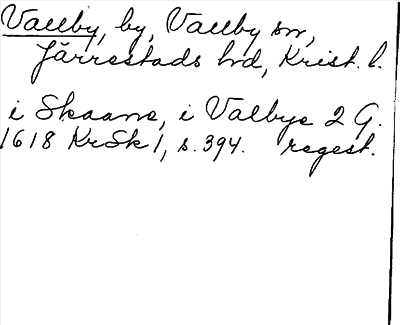 Vallby, by, Vallby sn,
Järrestads hd, Krist. l.
i Skaane, i Valbye 2 G.
1618 KrSk 1, s. 394. regest.